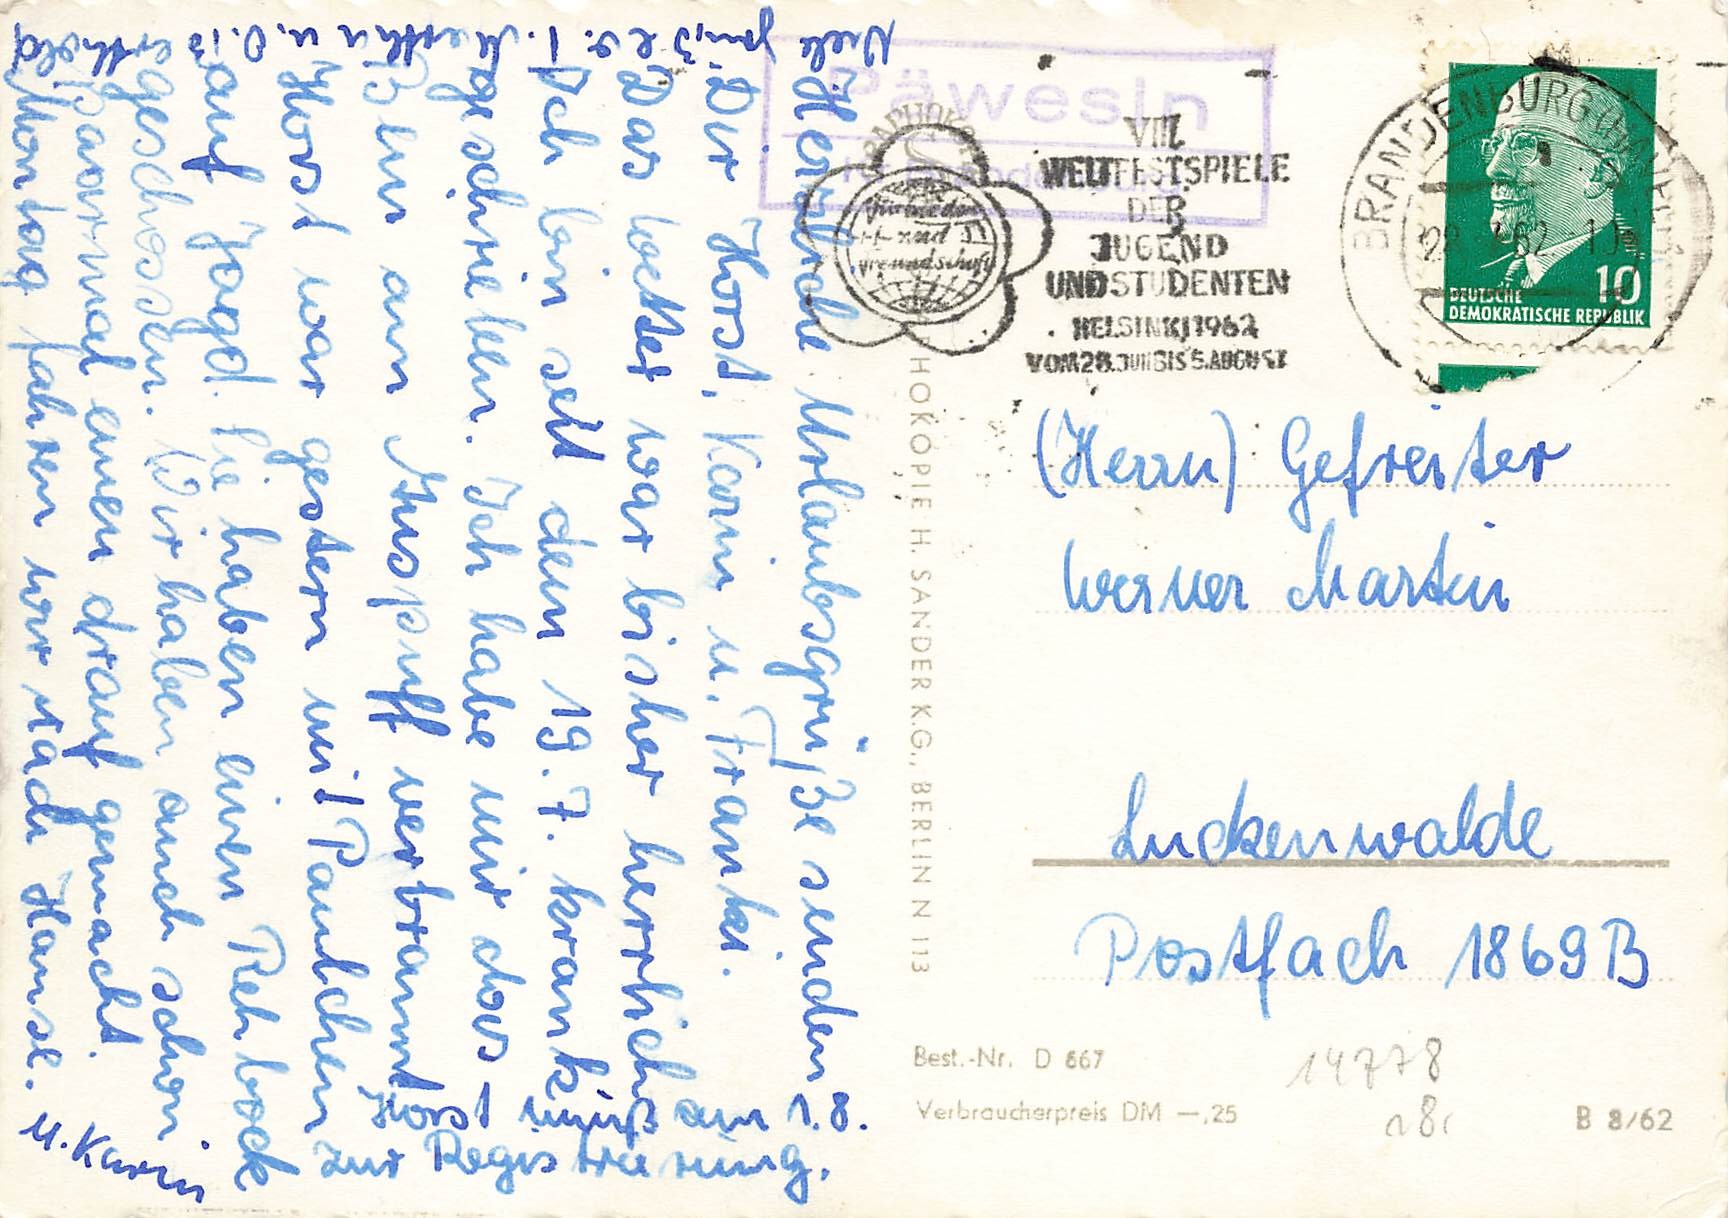 Herzliche Urlaubsgrüße senden
Dir Horst, Karin u. Franki.
Das Wetter war bisher herrlich
Ich bin seit dem 19.7. krank
geschrieben. Ich habe mir das
Bein am Auspuff verbrannt
Horst war gestern mit Paulchen
auf Jagd. Sie haben einen Rehbock
geschossen. Wir haben auch schon
Paarmal einen drauf gemacht.
Montag fahren wir nach Hause.
Horst muß am 1.8.
zur Registrierung.
u. Karin
Viele Grüße
Päwesin
über Brandenburg
für Frieden
und
Freundschaft
VIII.
WELTFESTSPIELE
DER
JUGEND
UND STUDENTEN
HELSINKI 1962
VOM 28. JULI BIS 5. AUGUST
BRANDENBURG (HAVEL)
10
DEUTSCHE
DEMOKRATISCHE REPUBLIK
(Herrn) Gefreiter
Werner Martin
Luckenwalde
Postfach 1869 B
PHOTOKOPIE H. SANDER K.G., BERLIN N 113
Best.-Nr. D 667
Verbraucherpreis DM —,25
B 8/62
14778